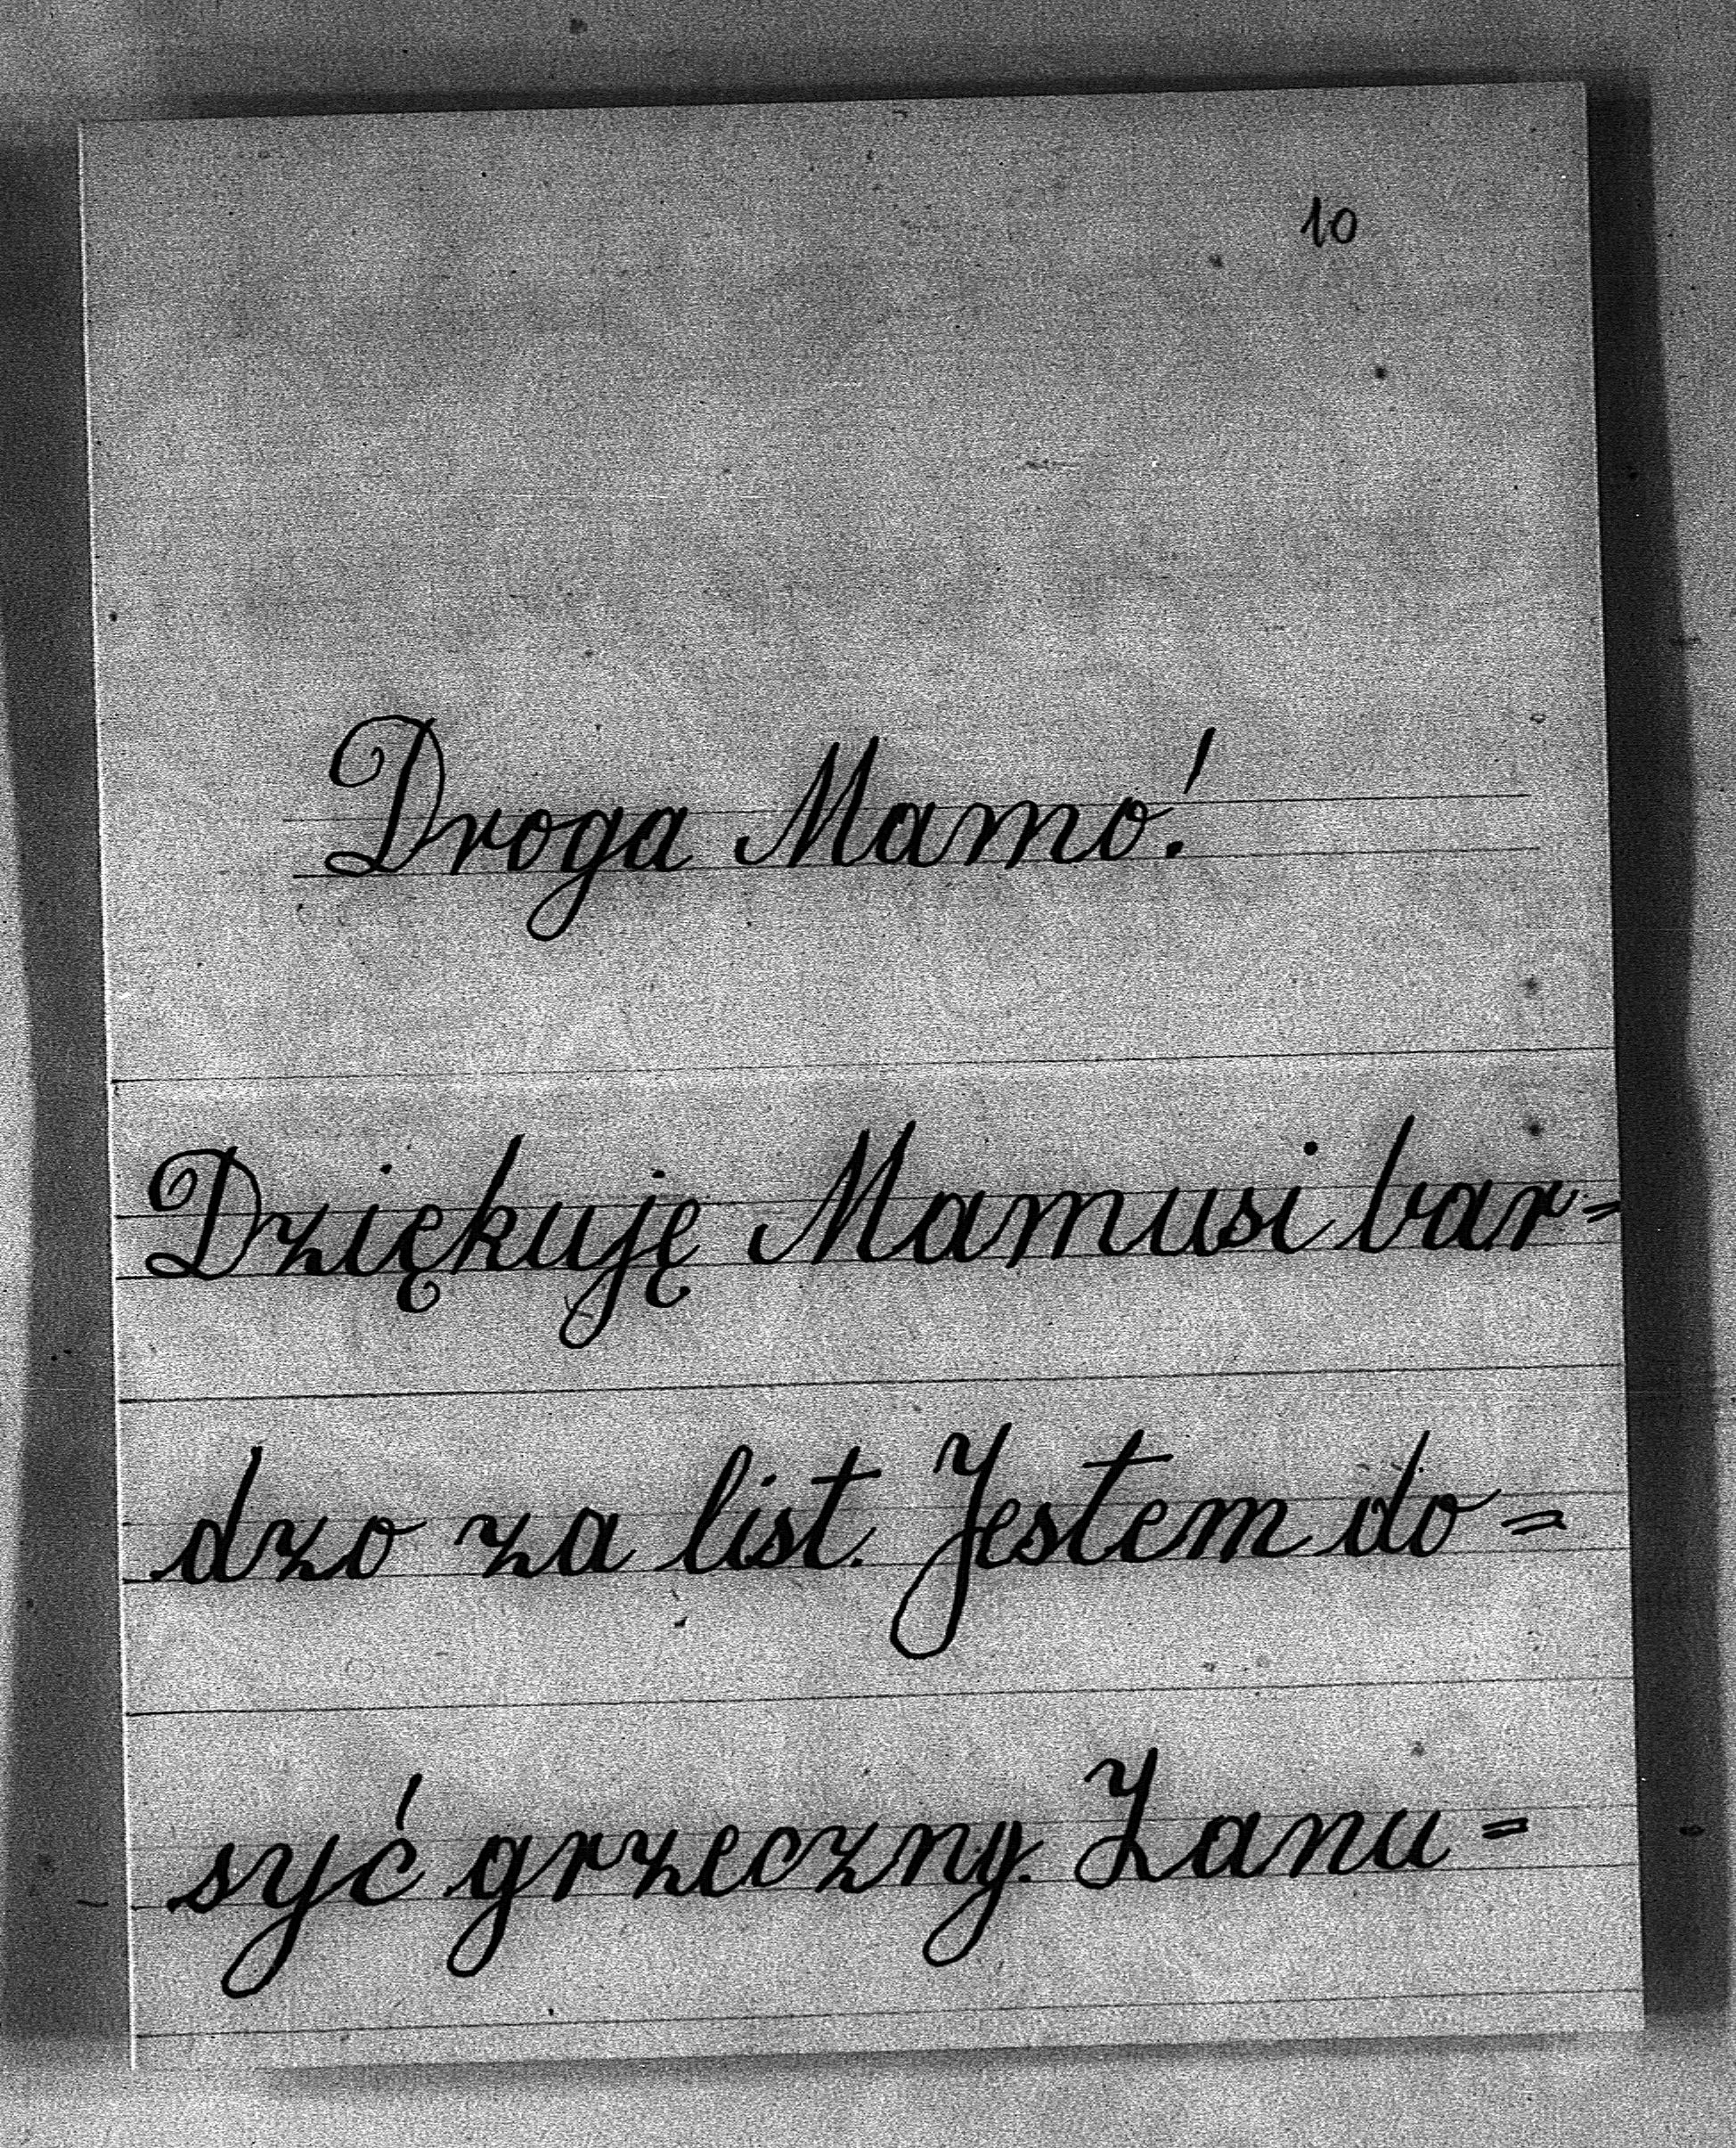 10
Droga Mamo!
Dziękuję Mamusi bar=
dzo za list. Jestem do=
syć grzeczny. Zanu=